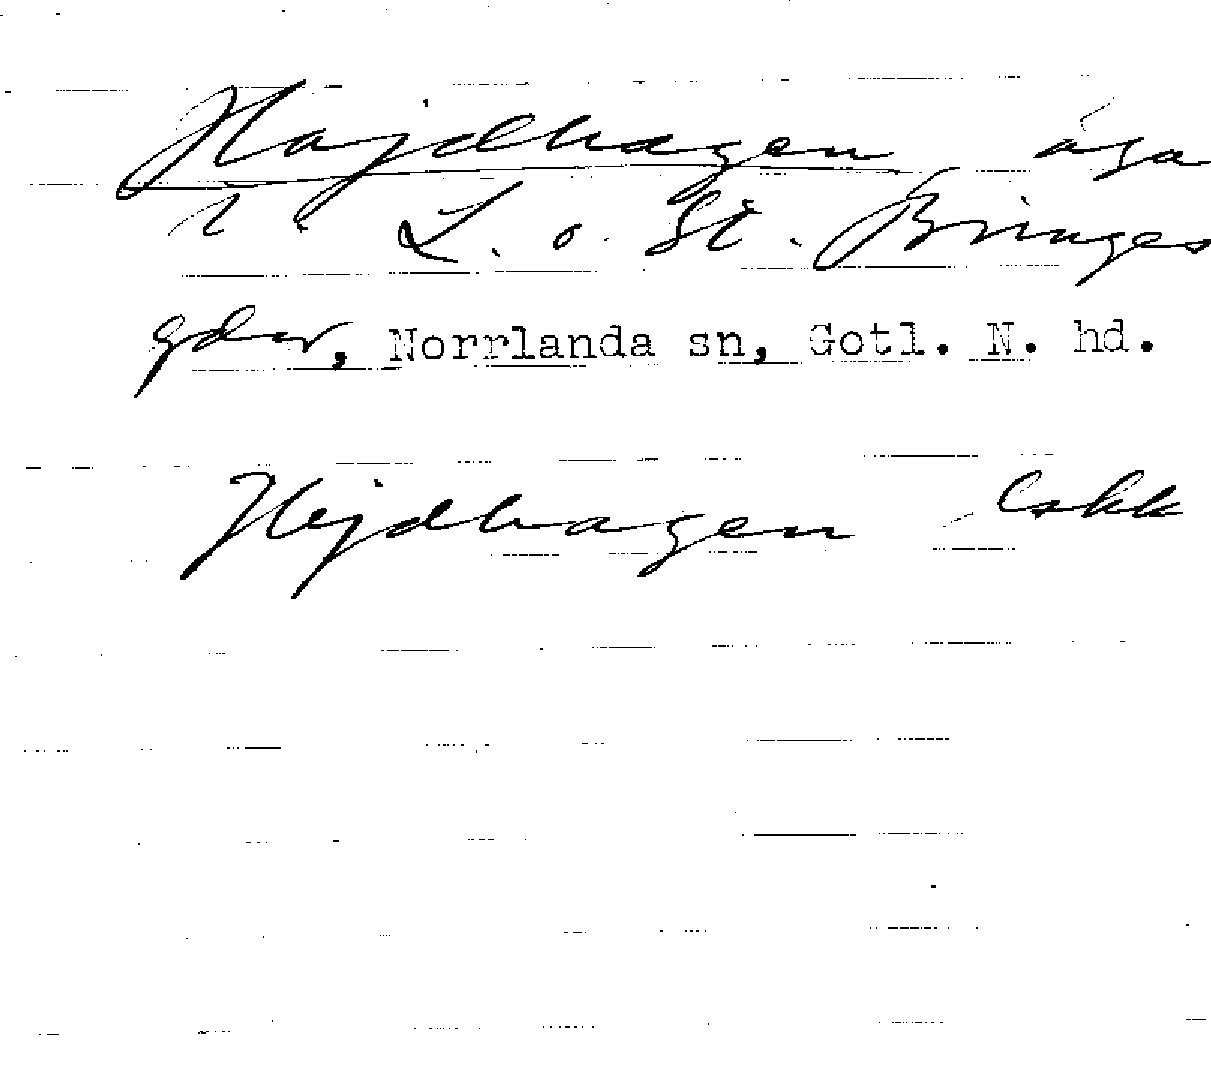 Hajdhagen äga
t. L. o. St. Bringes
gdar, Norrlanda sn, Gotl. N. hd.
Hejdhagen Eskk